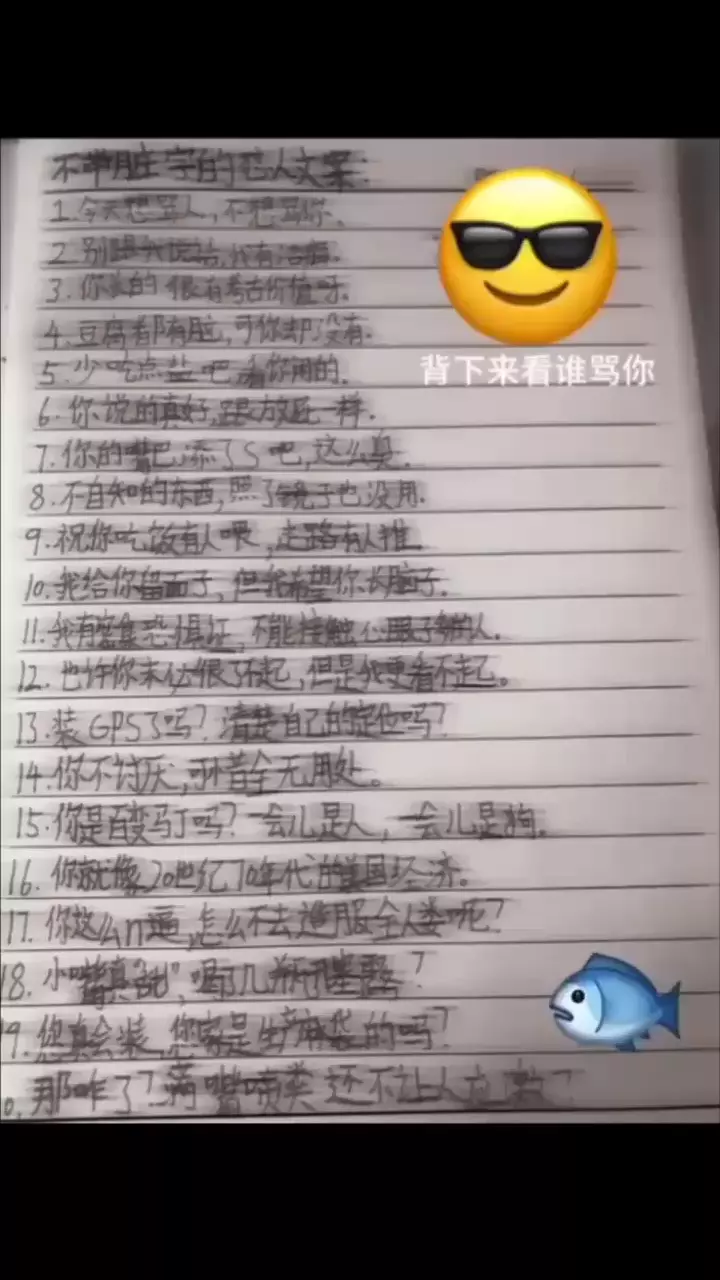 不带脏字的怼人文案:
1.今天想骂人,不想骂你、
2.别跟我说话,我有洁癖.
3.你长的很有考古价值呀.
4.豆腐都有脑,可你却没有.
背下来看谁骂你
5.少吃点盐吧,看你闲的.
6.你说的真好,跟放屁一样.
7.你的嘴巴添了S吧,这么臭.
8.不自知的东西,照了镜子也没用.
9.祝你吃饭有人喂,走路有人推
10.我给你留面子,但我希望你长脑子.
11.我有密集恐惧证,不能接触心眼子多的人.
12.也许你未必很了不起,但是我更看不起。
13.装GPS了吗?清楚自己的定位吗?
14.你不讨厌,可惜全无用处。
15.你是百变马丁吗?一会儿是人,一会儿是狗.
16.你就像20世纪70年代的美国经济。
17.你这么n逼,怎么不去造服全人类呃?
18.小嘴真"甜",喝几瓶开塞露?
19.您真会装,您家是生产麻袋的吗?
那咋了?满嘴喷粪还不让人